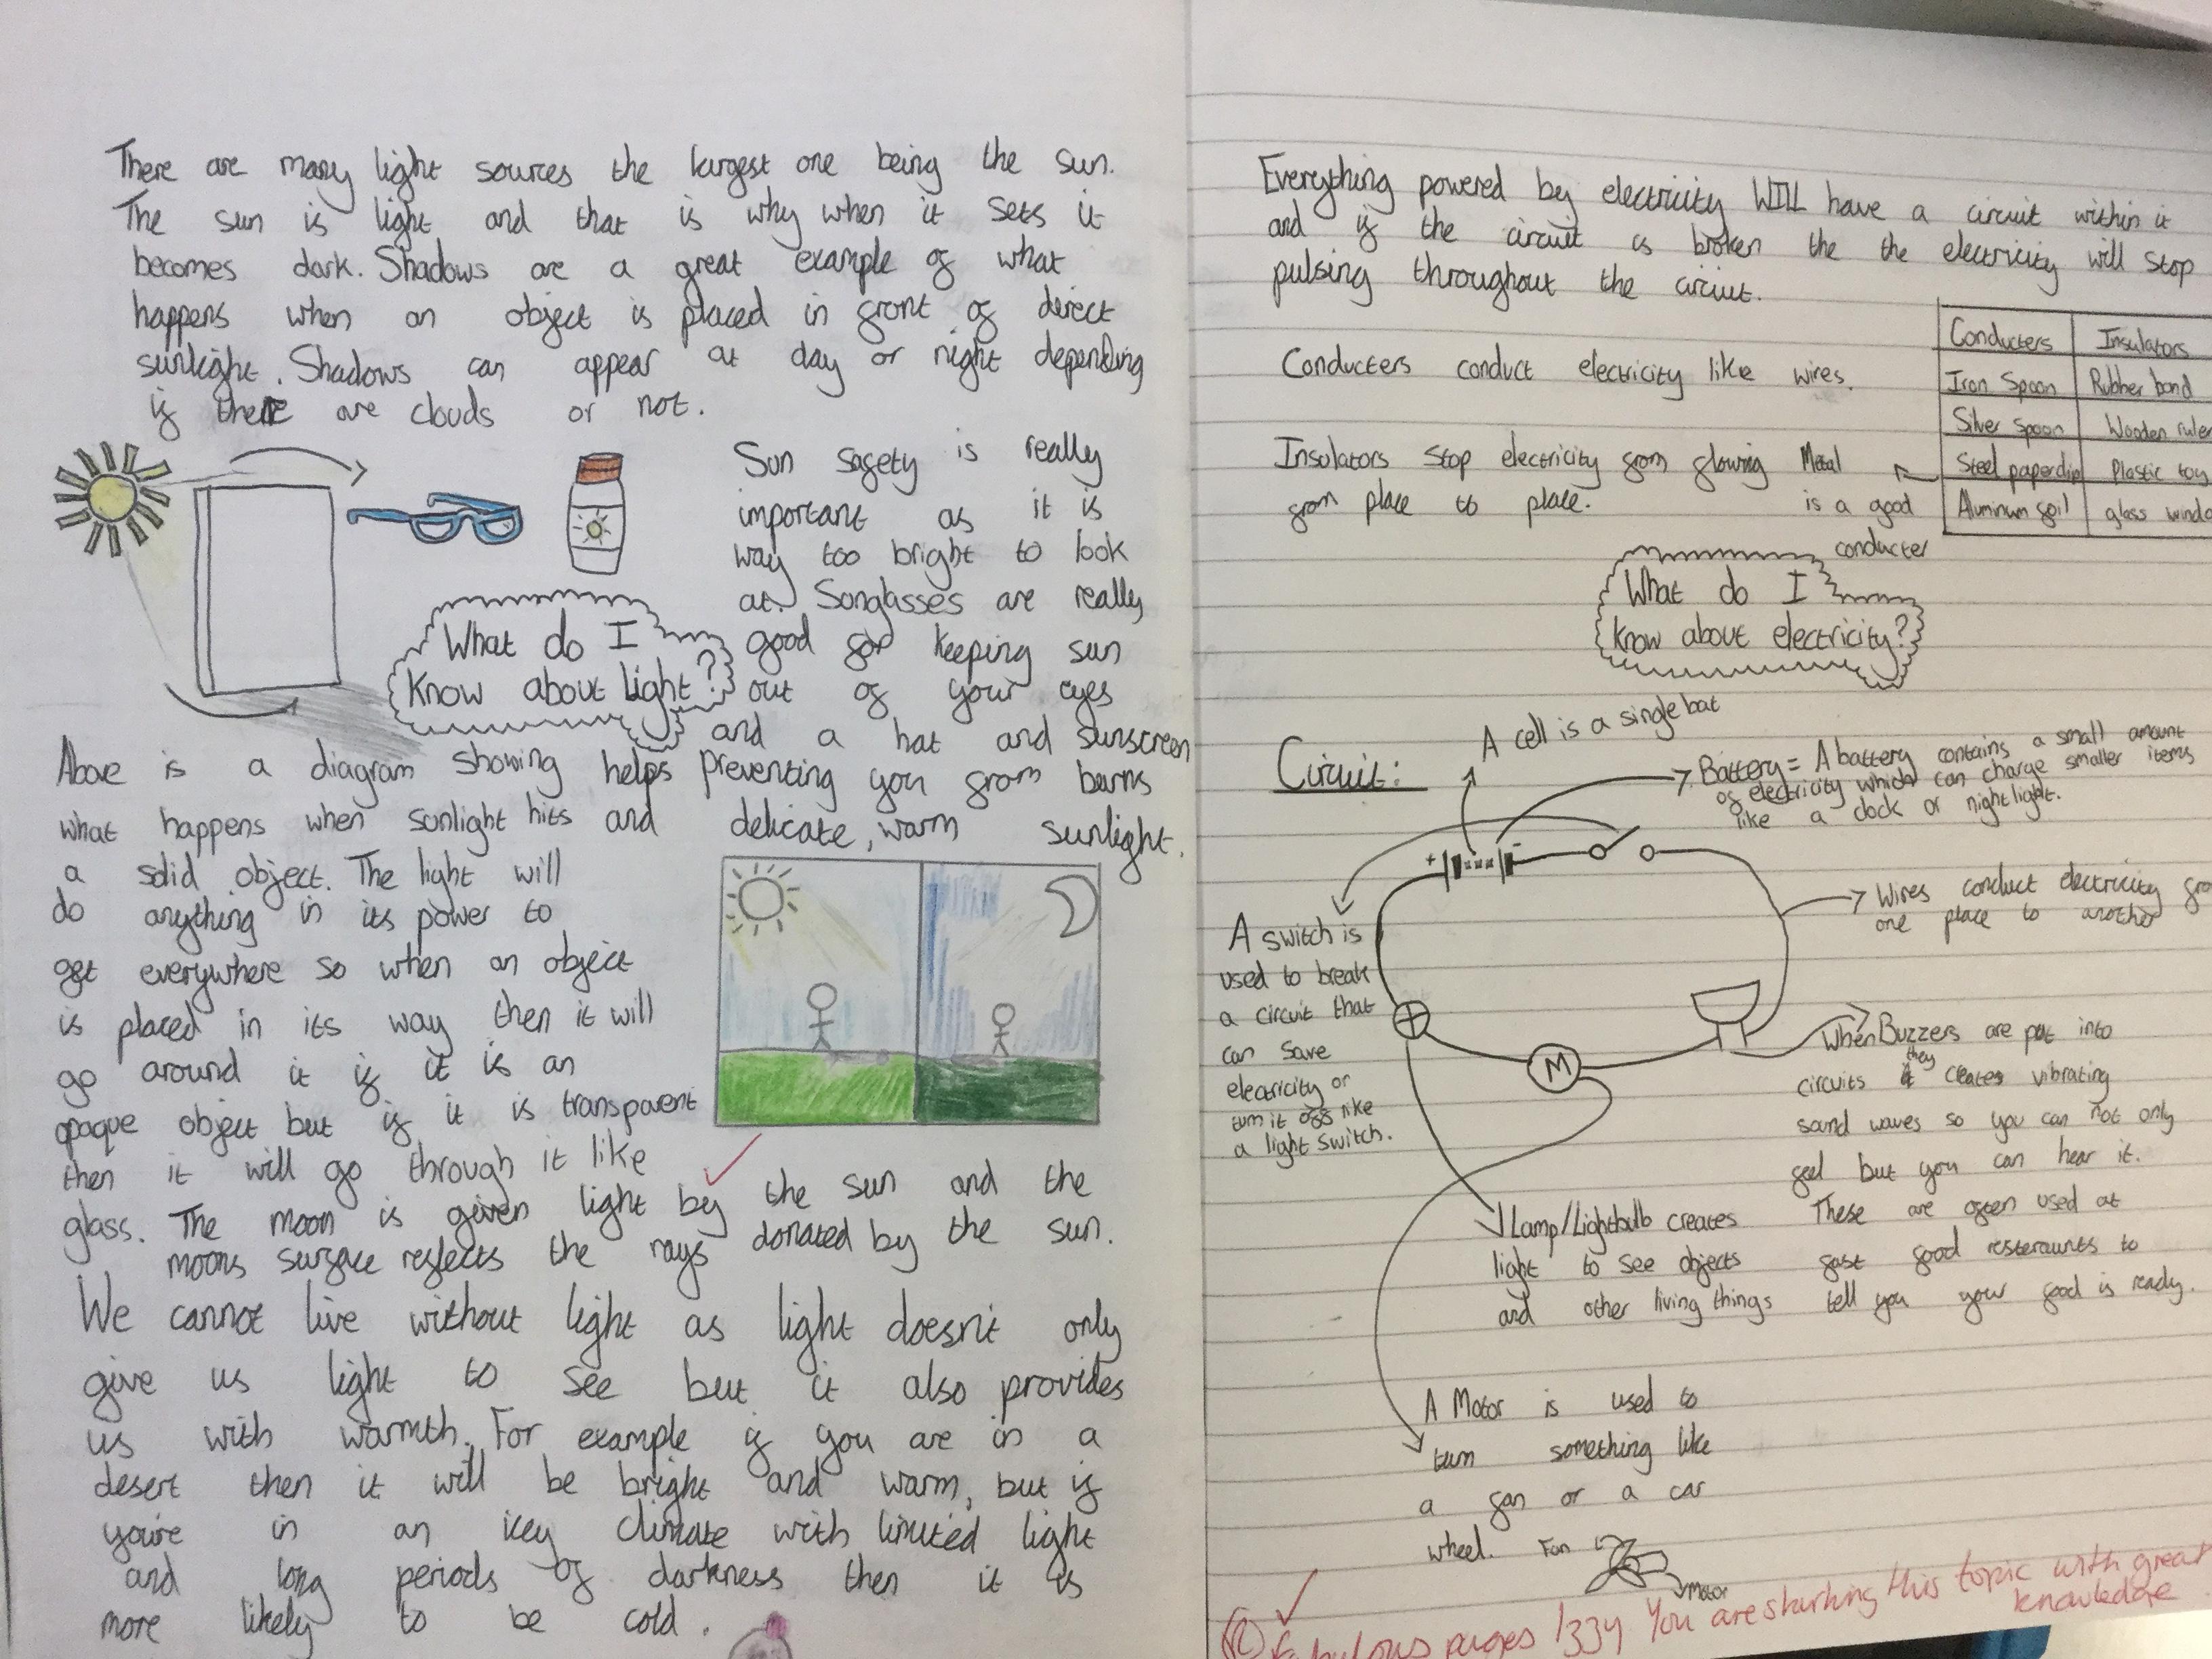 There are many light sources the largest one being the sun.
The sun is light and that is why when it sets it
becomes dark. Shadows are a great example of what
happens when an object is placed in front of direct
sunlight. Shadows can appear at day or night depending
if there are clouds or not.
Sun safety is really
important as it is
way too bright to look
at. Sunglasses are really
good for keeping sun
out of your eyes
and a hat and sunscreen
helps preventing you from burns
and delicate, warm sunlight.
What do I
Know about Light?
Above is a diagram showing
what happens when sunlight hits
a solid object. The light will
do anything in its power to
get everywhere so when an object
is placed in its way then it will
go around it if it is an
opaque object but if it is transparent
then it will go through it like
glass. The moon is given light by the sun and the
moons surface reflects the rays donated by the sun.
We cannot live without light as light doesn't only
give us light to see but it also provides
us with warmth. For example if you are in a
desert then it will be bright and warm, but if
you're in an icey climate with limited light
and long periods of darkness then it is
more likely to be cold.
Everything powered by electricity WILL have a circuit within it
and if the circuit is broken the the electricity will stop
pulsing throughout the circuit.
Conducters conduct electricity like wires.
Insulators stop electricity from flowing
from place to place.
Conducters Insulators
Iron Spoon Rubber band
Silver spoon Wooden ruler
Steel paperclip Plastic toy
Aluminum foil glass windo
Metal
is a good
conducter
What do I
know about electricity?
Circuit:
A cell is a single bat
Battery = A battery contains a small amount
of electricity which can charge smaller items
like a clock or nightlight.
+ -
Wires conduct electricity fro
one place to another
A switch is
used to break
a circuit that
can save
electricity or
turn it off like
a light switch.
M
When Buzzers are put into
circuits they creates vibrating
sound waves so you can not only
feel but you can hear it.
These are often used at
fast food resteraunts to
tell you your food is ready.
Lamp/Lightbulb creates
light to see objects
and other living things
A Motor is used to
turn something like
a fan or a car
wheel. Fan
Motor
Fabulous pages You are starting this topic with great
knowledge